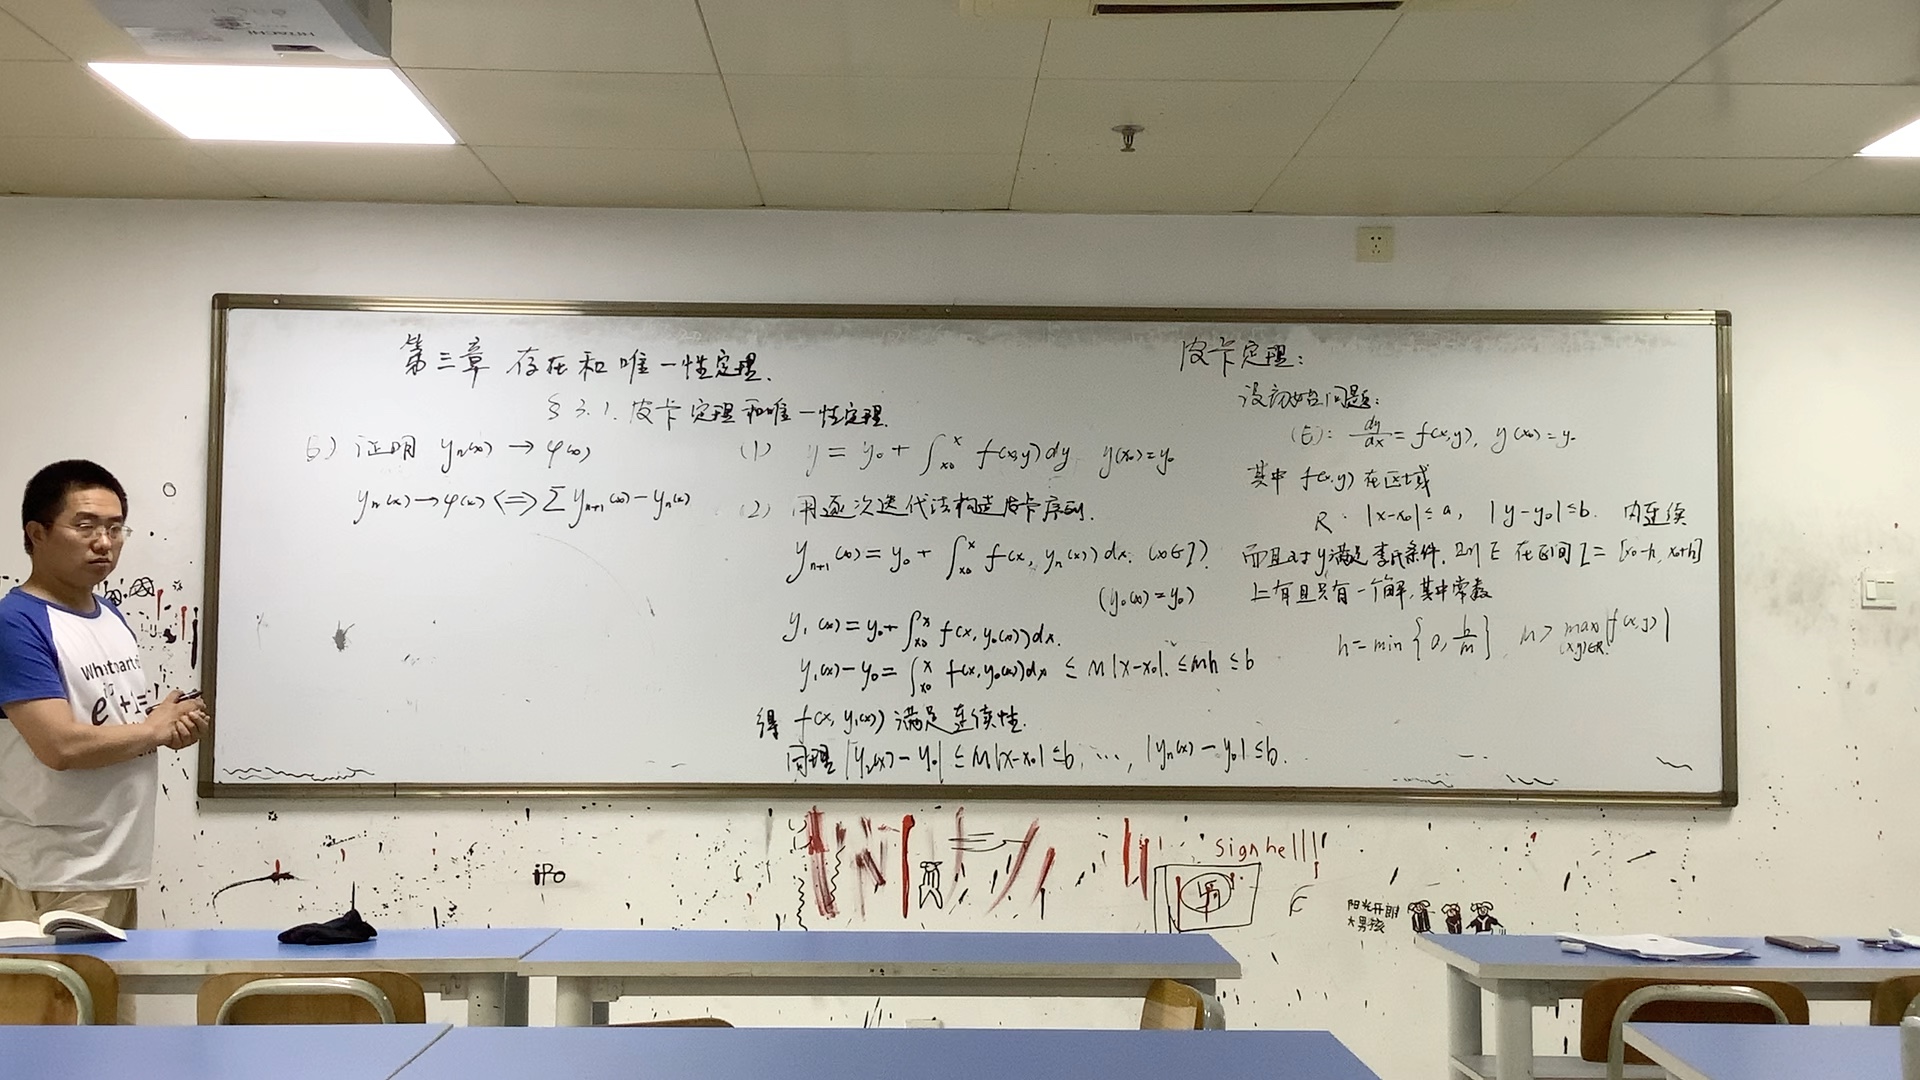 第三章 存在和唯一性定理.
§3.1. 皮卡定理和唯一性定理.
3) 证明 yₙ(x) → φ(x)
yₙ(x) → φ(x) ⟺ Σ yₙ₊₁(x) − yₙ(x)
(1) y = y₀ + ∫ₓ₀ˣ f(x,y)dy y(x₀)=y₀
(2) 用逐次迭代法构造皮卡序列.
yₙ₊₁(x) = y₀ + ∫ₓ₀ˣ f(x, yₙ(x)) dx. (x∈I).
(y₀(x) = y₀)
y₁(x) = y₀ + ∫ₓ₀ˣ f(x, y₀(x)) dx.
y₁(x) − y₀ = ∫ₓ₀ˣ f(x, y₀(x)) dx ≤ M|x−x₀|. ≤ Mh ≤ b
得 f(x, y₁(x)) 满足连续性.
同理 |y₂(x) − y₀| ≤ M|x−x₀| ≤ b, ⋯, |yₙ(x) − y₀| ≤ b.
皮卡定理:
设初始问题:
(E): dy/dx = f(x,y), y(x₀) = y₀
其中 f(x,y) 在区域
R: |x−x₀| ≤ a, |y−y₀| ≤ b. 内连续
而且对y满足李氏条件. 则 E 在区间 I = [x₀−h, x₀+h]
上有且只有一个解, 其中常数
h = min {a, b/m} M > max |f(x,y)|
(x,y)∈R
signhell!
iPo
阳光开朗
大男孩
e + 1 =